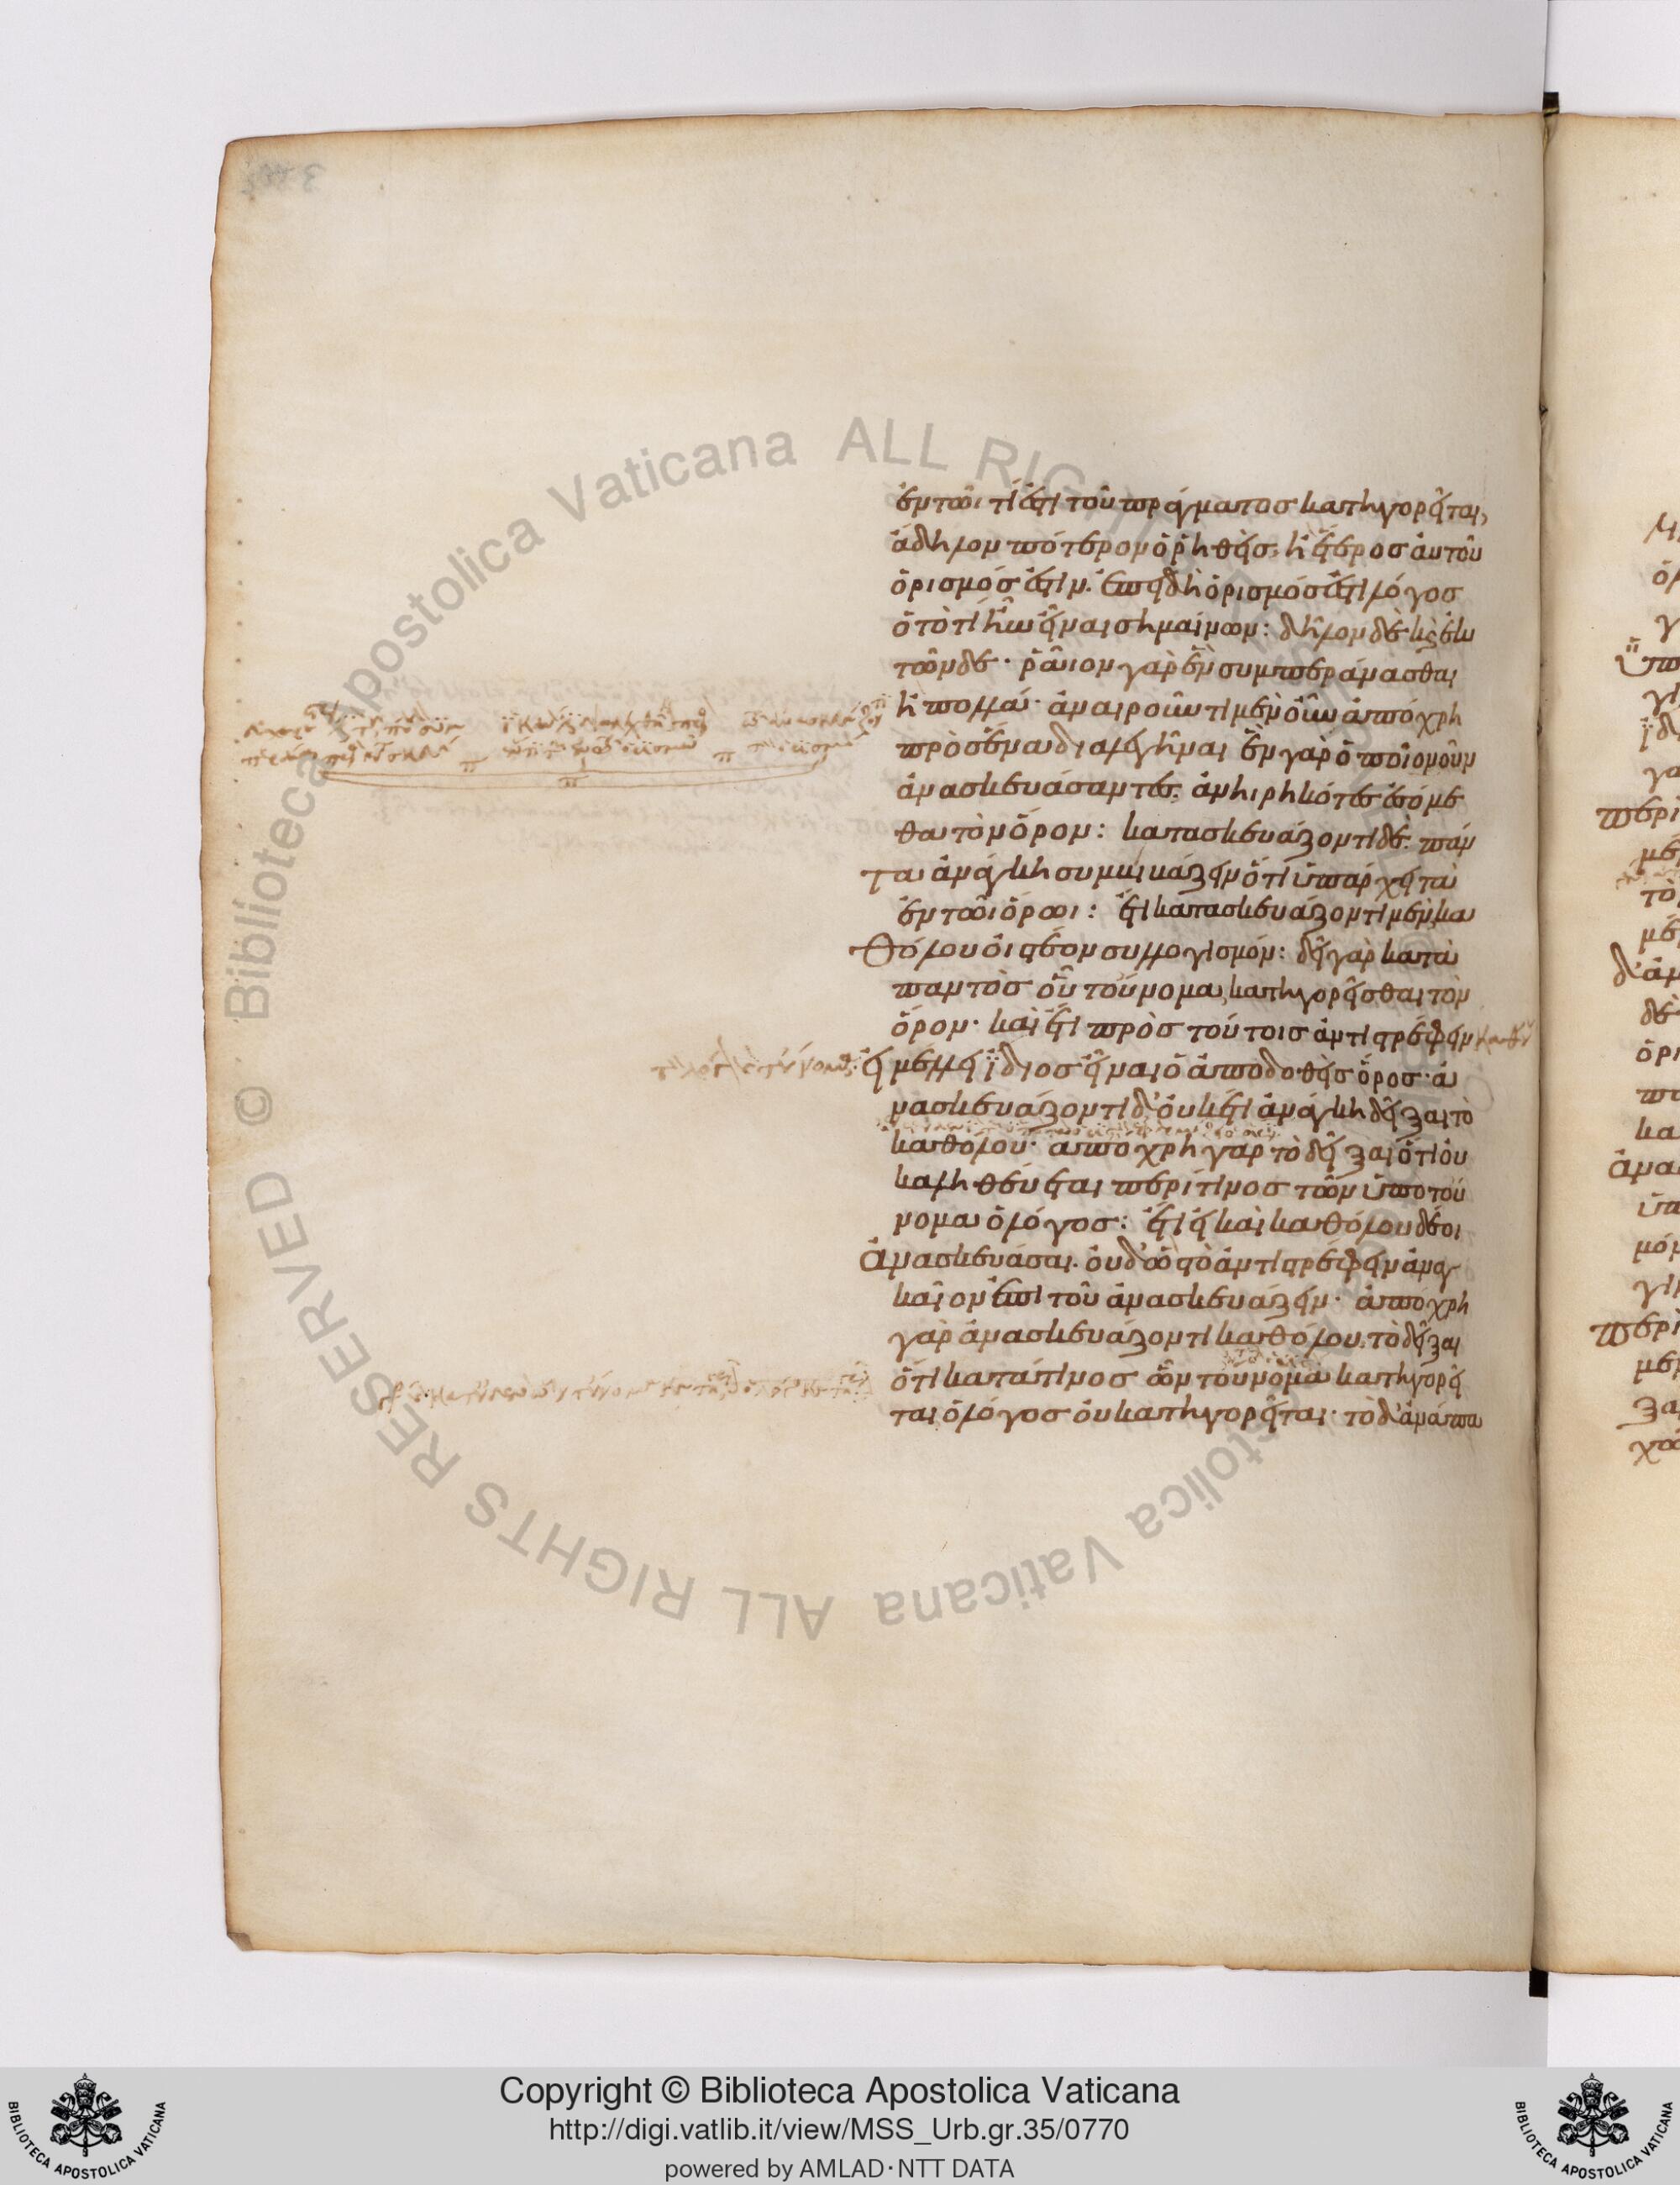 ἐν τῶι τί ἐστι τοῦ πράγματος κατηγορεῖται,
ἄδηλον πότερον ὁ ῥηθεὶς, ἢ ἕτερος αὐτοῦ
ὁρισμός ἐστιν. ἐπειδὴ ὁρισμός ἐστι λόγος
ὁ τὸ τί ἦν εἶναι σημαίνων: δῆλον δὲ καὶ ἐκ
τῶνδε· ῥᾶιον γὰρ ἓν συμπεράνασθαι
ἢ πολλά· ἀναιροῦντι μὲν οὖν ἀπόχρη
πρὸς ἓν διαλεγῆναι ἓν γὰρ ὁποιονοῦν
ἀνασκευάσαντες, ἀνηιρηκότες ἐσόμε
θα τὸν ὅρον: κατασκευάζοντι δὲ, πάν
τα ἀνάγκη συμβιβάζειν ὅτι ὑπάρχει τὰ
ἐν τῶι ὅρωι: ἔτι κατασκευάζοντι μὲν, κα
θόλου οἰστέον συλλογισμόν: δεῖ γὰρ κατὰ
παντὸς οὗ τοὔνομα, κατηγορεῖσθαι τὸν
ὅρον· καὶ ἔτι πρὸς τούτοις ἀντιστρέφειν
εἰ μέλλει ἴδιος εἶναι ὁ ἀποδοθεὶς ὅρος· ἀ
νασκευάζοντι δ' οὐκέτι ἀνάγκη δεῖξαι τὸ
καθόλου· ἀπόχρη γὰρ τὸ δεῖξαι ὅτι οὐ
κ ἀληθεύεται περί τινος τῶν ὑπὸ τοὔ
νομα ὁ λόγος: ἔτι εἰ καὶ καθόλου δέοι
ἀνασκευάσαι. οὐδ' ὣς τὸ ἀντιστρέφειν ἀναγ
καῖον ἐπὶ τοῦ ἀνασκευάζειν· ἀπόχρη
γὰρ ἀνασκευάζοντι καθόλου, τὸ δεῖξαι
ὅτι κατά τινος ὧν τοὔνομα κατηγορεῖ
ται ὁ λόγος οὐ κατηγορεῖται· τὸ δ' ἀνάπα
Biblioteca Apostolica Vaticana ALL RIGHTS RESERVED ©
Copyright © Biblioteca Apostolica Vaticana
http://digi.vatlib.it/view/MSS_Urb.gr.35/0770
powered by AMLAD·NTT DATA
BIBLIOTECA APOSTOLICA VATICANA
BIBLIOTECA APOSTOLICA VATICANA